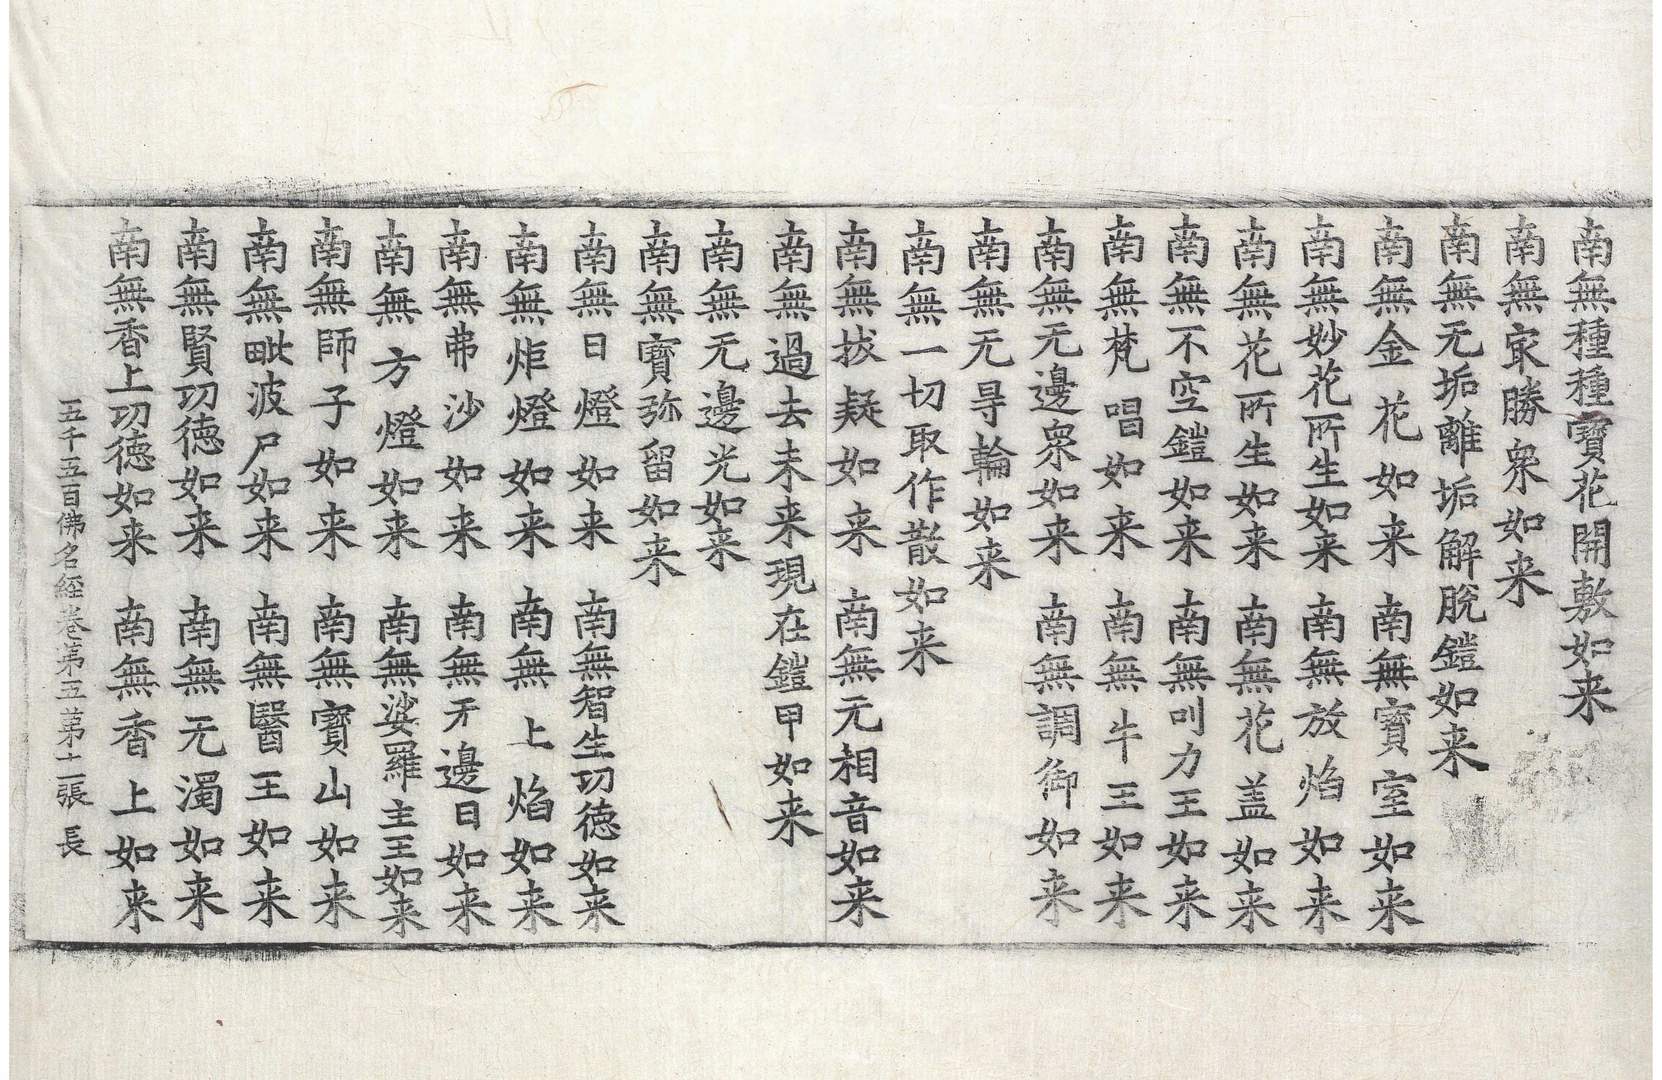 南無種種寶花開敷如来
南無㝡勝衆如来
南無无垢離垢解脫鎧如来
南無金花如来 南無寶室如来
南無妙花所生如来 南無放焰如来
南無花所生如来 南無花盖如来
南無不空鎧如来 南無叫力王如来
南無梵唱如来 南無牛王如来
南無无邊衆如来 南無調御如来
南無无㝵輪如来
南無一切取作散如来
南無拔疑如来 南無无相音如来
南無過去未来現在鎧甲如来
南無无邊光如来
南無寶弥留如来
南無日燈如来 南無智生功德如来
南無炬燈如来 南無上焰如来
南無弗沙如来 南無无邊日如来
南無方燈如来 南無娑羅主王如来
南無師子如来 南無寶山如来
南無毗波尸如来 南無醫王如来
南無賢功德如来 南無无濁如来
南無香上功德如来 南無香上如来
五千五百佛名經卷第五 第十二張 長